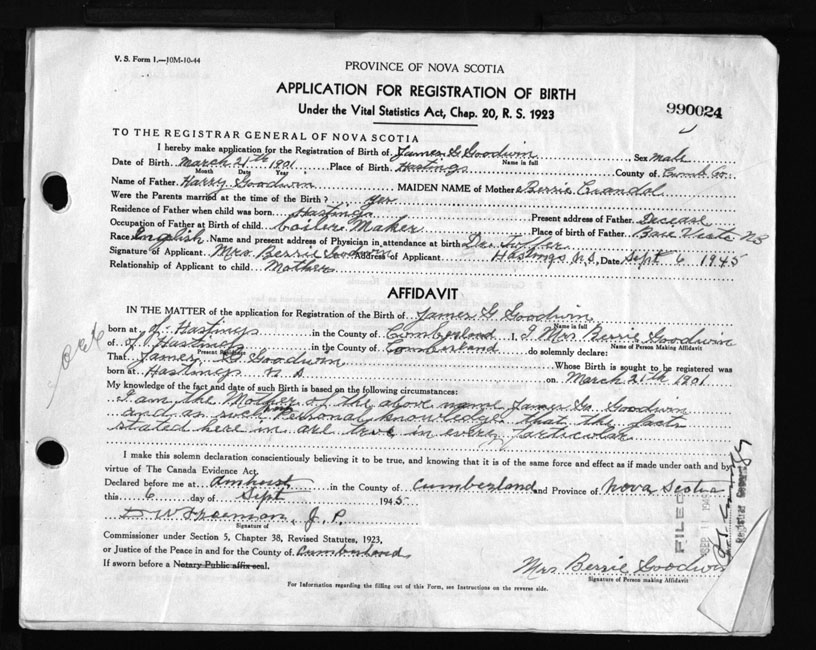 V. S. Form 1.—10M-10-44
PROVINCE OF NOVA SCOTIA
APPLICATION FOR REGISTRATION OF BIRTH
Under the Vital Statistics Act, Chap. 20, R. S. 1923
990024
TO THE REGISTRAR GENERAL OF NOVA SCOTIA
I hereby make application for the Registration of Birth of James G Goodwin Sex male
Name in full
Date of Birth March 21th 1901 Place of Birth Hastings County of Cumb Co.
Month Date Year
Name of Father Harry Goodwin MAIDEN NAME of Mother Berrie Crandal
Were the Parents married at the time of the Birth? yes
Residence of Father when child was born Hastings Present address of Father Decease
Occupation of Father at Birth of child boiler Maker Place of birth of Father Baie Viste NB
Race English Name and present address of Physician in attendance at birth Dr.
Signature of Applicant Mrs Berrie Goodwin Address of Applicant Hastings N.S. Date Sept 6 1945
Relationship of Applicant to child Mother
AFFIDAVIT
IN THE MATTER of the application for Registration of the Birth of James G Goodwin
Name in full
born at of Hastings in the County of Cumberland I, I Mrs Berrie Goodwin
Name of Person Making Affidavit
of of Hastings in the County of Cumberland do solemnly declare:
Present Residence
That James G. Goodwin Whose Birth is sought to be registered was
born at Hastings N S on March 21th 1901
My knowledge of the fact and date of such Birth is based on the following circumstances:
I am the Mother of the above name James G. Goodwin
and as such have Personal knowledge that the facts
stated here in are true in every particular
I make this solemn declaration conscientiously believing it to be true, and knowing that it is of the same force and effect as if made under oath and by
virtue of The Canada Evidence Act.
Declared before me at Amherst in the County of Cumberland and Province of Nova Scotia
this 6 day of Sept 1945
W Freeman, J. P.
Signature of
Commissioner under Section 5, Chapter 38, Revised Statutes, 1923,
or Justice of the Peace in and for the County of Cumberland
If sworn before a Notary Public affix seal.
Mrs Berrie Goodwin
Signature of Person making Affidavit
For Information regarding the filling out of this Form, see Instructions on the reverse side.
FILED
SEP 11 194
Registrar General